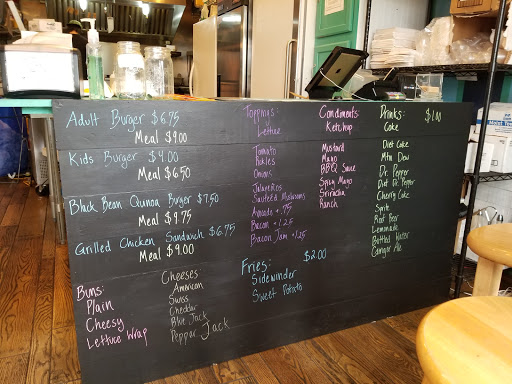 Adult Burger $6.75
Meal $9.00
Kids Burger $4.00
Meal $6.50
Black Bean Quinoa Burger $7.50
Meal $9.75
Grilled Chicken Sandwich $6.75
Meal $9.00
Buns:
Plain
Cheesy
Lettuce Wrap
Cheeses
American
Swiss
Cheddar
Blue Jack
Pepper Jack
Toppings:
Lettuce
Tomato
Pickles
Onions
Jalapeños
Sauteéd Mushrooms
Avocado +.75
Bacon +1.25
Bacon Jam +1.25
Fries: $2.00
Sidewinder
Sweet Potato
Condiments:
Ketchup
Mustard
Mayo
BBQ Sauce
Spicy Mayo
Sriracha
Ranch
Drinks: $1.00
Coke
Diet Coke
Mtn Dew
Dr. Pepper
Diet Dr. Pepper
Cherry Coke
Sprite
Root Beer
Lemonade
Bottled Water
Ginger Ale